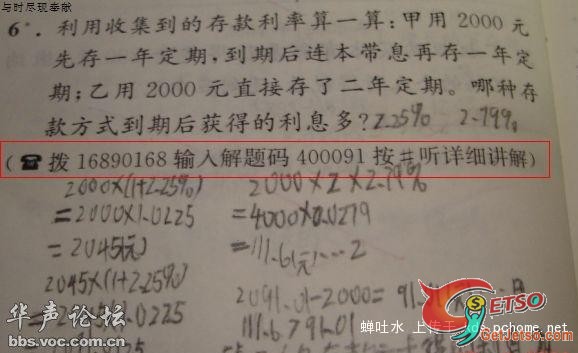 与时尽现奉献
6*. 利用收集到的存款利率算一算:甲用 2000 元
先存一年定期,到期后连本带息再存一年定
期;乙用 2000 元直接存了二年定期。哪种存
款方式到期后获得的利息多? 2.25% 2.79%
(☎拨 16890168 输入解题码 400091 按#听详细讲解)
2000×(1+2.25%) 2000×2×2.79%
=2000×1.0225 =4000×0.0279
=2045(元) =111.6(元)……2
2045×(1+2.25%)
2091.01-2000=91.
111.6 91.01
华声论坛
bbs.voc.com.cn
蝉吐水 上传于
pchome.net
SETSO